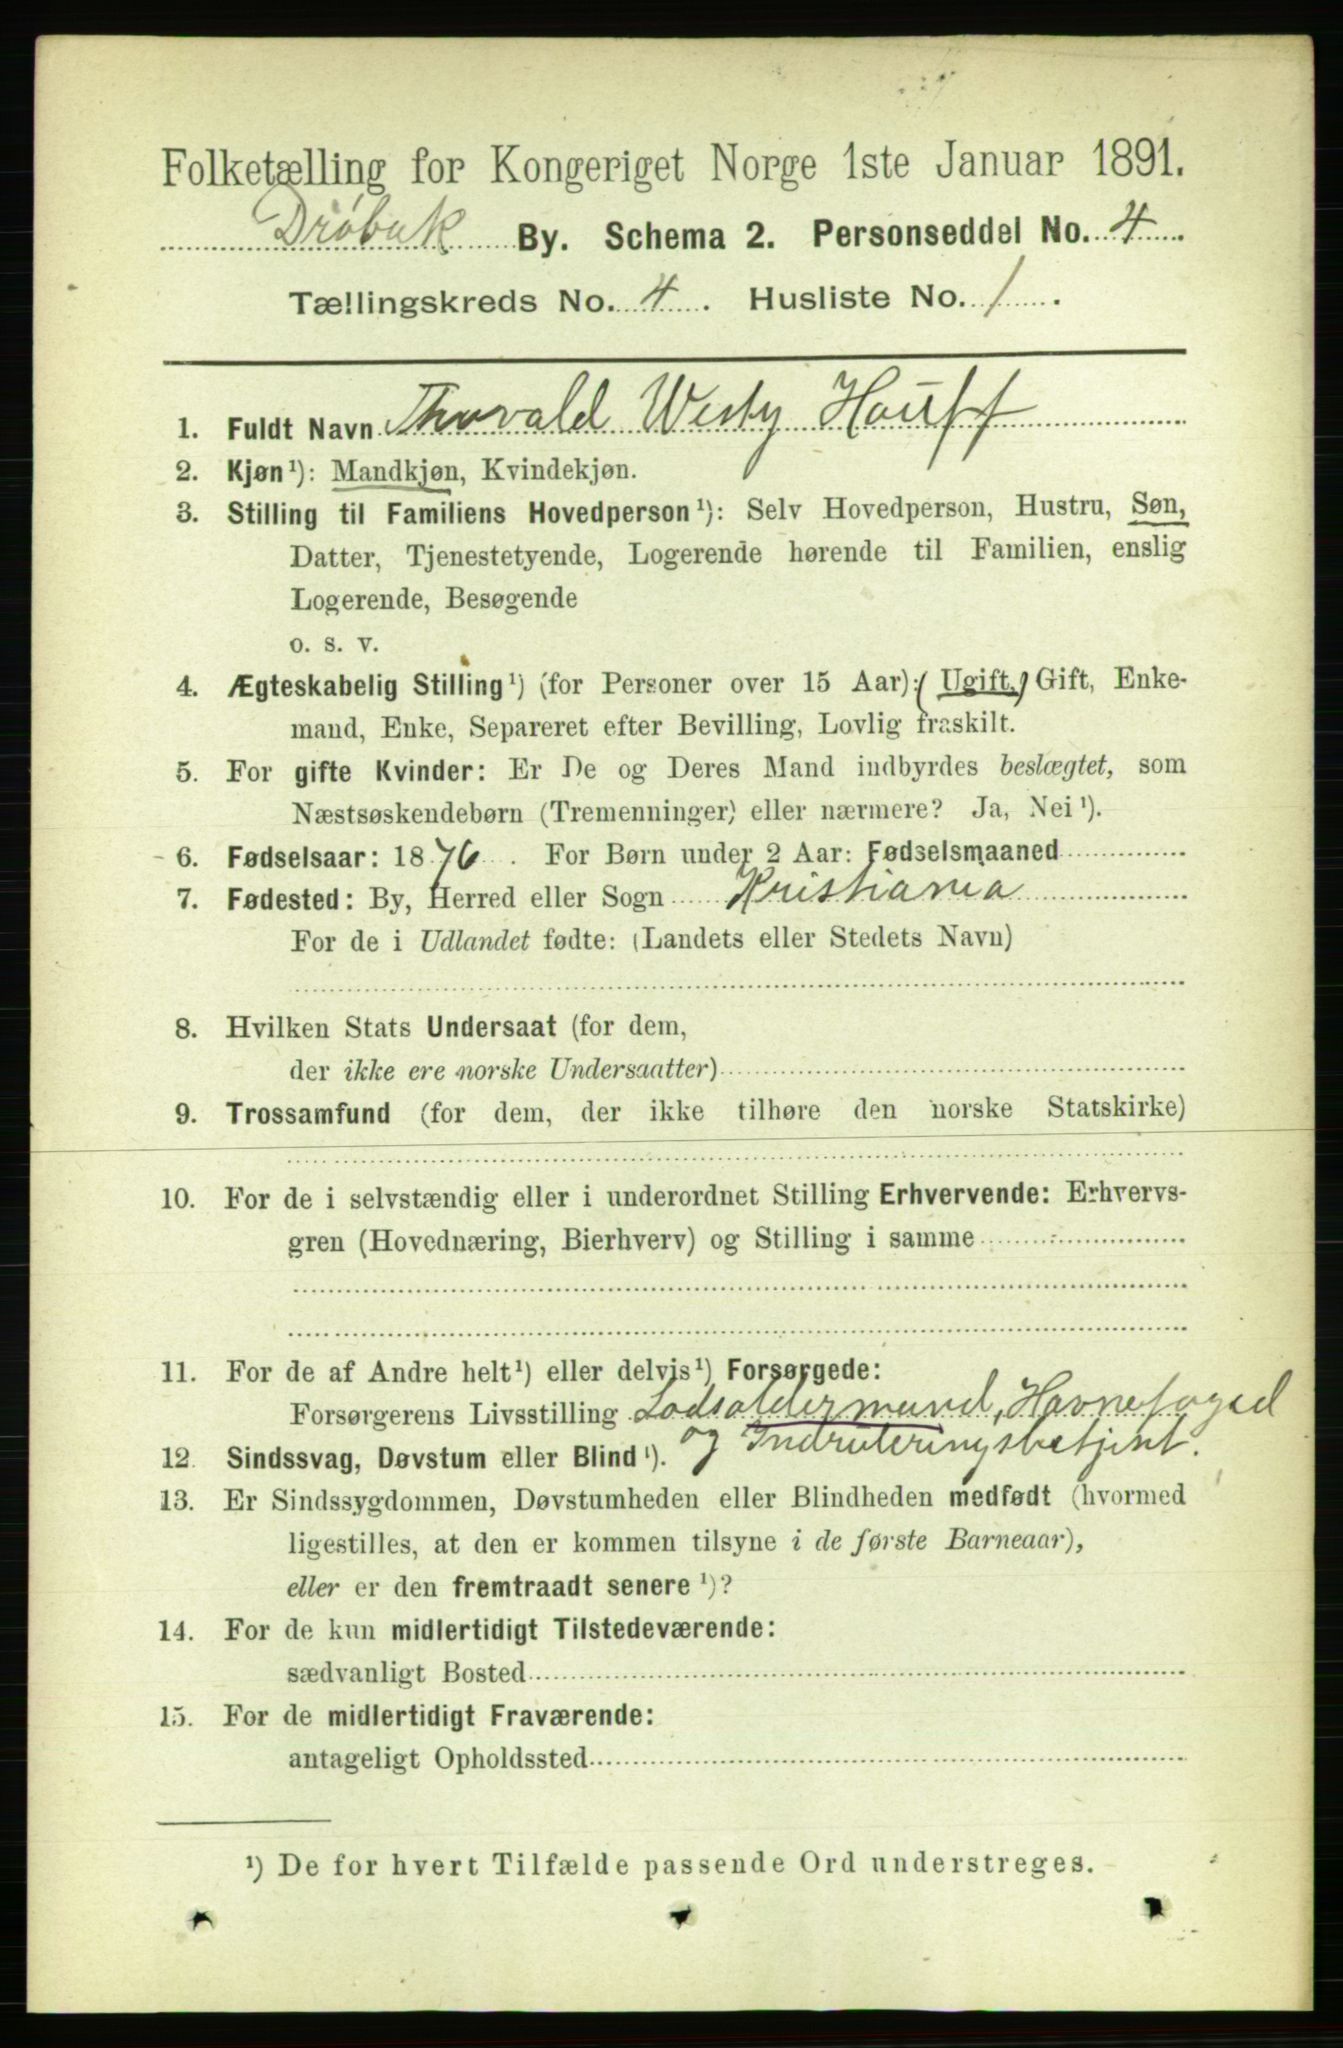 Folketælling for Kongeriget Norge 1ste Januar 1891.
Drøbak By. Schema 2. Personseddel No. 4
Tællingskreds No. 4. Husliste No. 1.
1. Fuldt Navn Thorvald Wesby Hauff
2. Kjøn¹): Mandkjøn, Kvindekjøn.
3. Stilling til Familiens Hovedperson¹): Selv Hovedperson, Hustru, Søn,
Datter, Tjenestetyende, Logerende hørende til Familien, enslig
Logerende, Besøgende
o. s. v.
4. Ægteskabelig Stilling¹) (for Personer over 15 Aar): (Ugift,) Gift, Enke-
mand, Enke, Separeret efter Bevilling, Lovlig fraskilt.
5. For gifte Kvinder: Er De og Deres Mand indbyrdes beslægtet, som
Næstsøskendebørn (Tremenninger) eller nærmere? Ja, Nei¹).
6. Fødselsaar: 1876. For Børn under 2 Aar: Fødselsmaaned
7. Fødested: By, Herred eller Sogn Kristiania
For de i Udlandet fødte: (Landets eller Stedets Navn)
8. Hvilken Stats Undersaat (for dem,
der ikke ere norske Undersaatter)
9. Trossamfund (for dem, der ikke tilhøre den norske Statskirke)
10. For de i selvstændig eller i underordnet Stilling Erhvervende: Erhvervs-
gren (Hovednæring, Bierhverv) og Stilling i samme
11. For de af Andre helt¹) eller delvis¹) Forsørgede:
Forsørgerens Livsstilling Lodsoldermand, Havnefoged
og Indruteringsbetjent.
12. Sindssvag, Døvstum eller Blind¹).
13. Er Sindssygdommen, Døvstumheden eller Blindheden medfødt (hvormed
ligestilles, at den er kommen tilsyne i de første Barneaar),
eller er den fremtraadt senere¹)?
14. For de kun midlertidigt Tilstedeværende:
sædvanligt Bosted
15. For de midlertidigt Fraværende:
antageligt Opholdssted
¹) De for hvert Tilfælde passende Ord understreges.